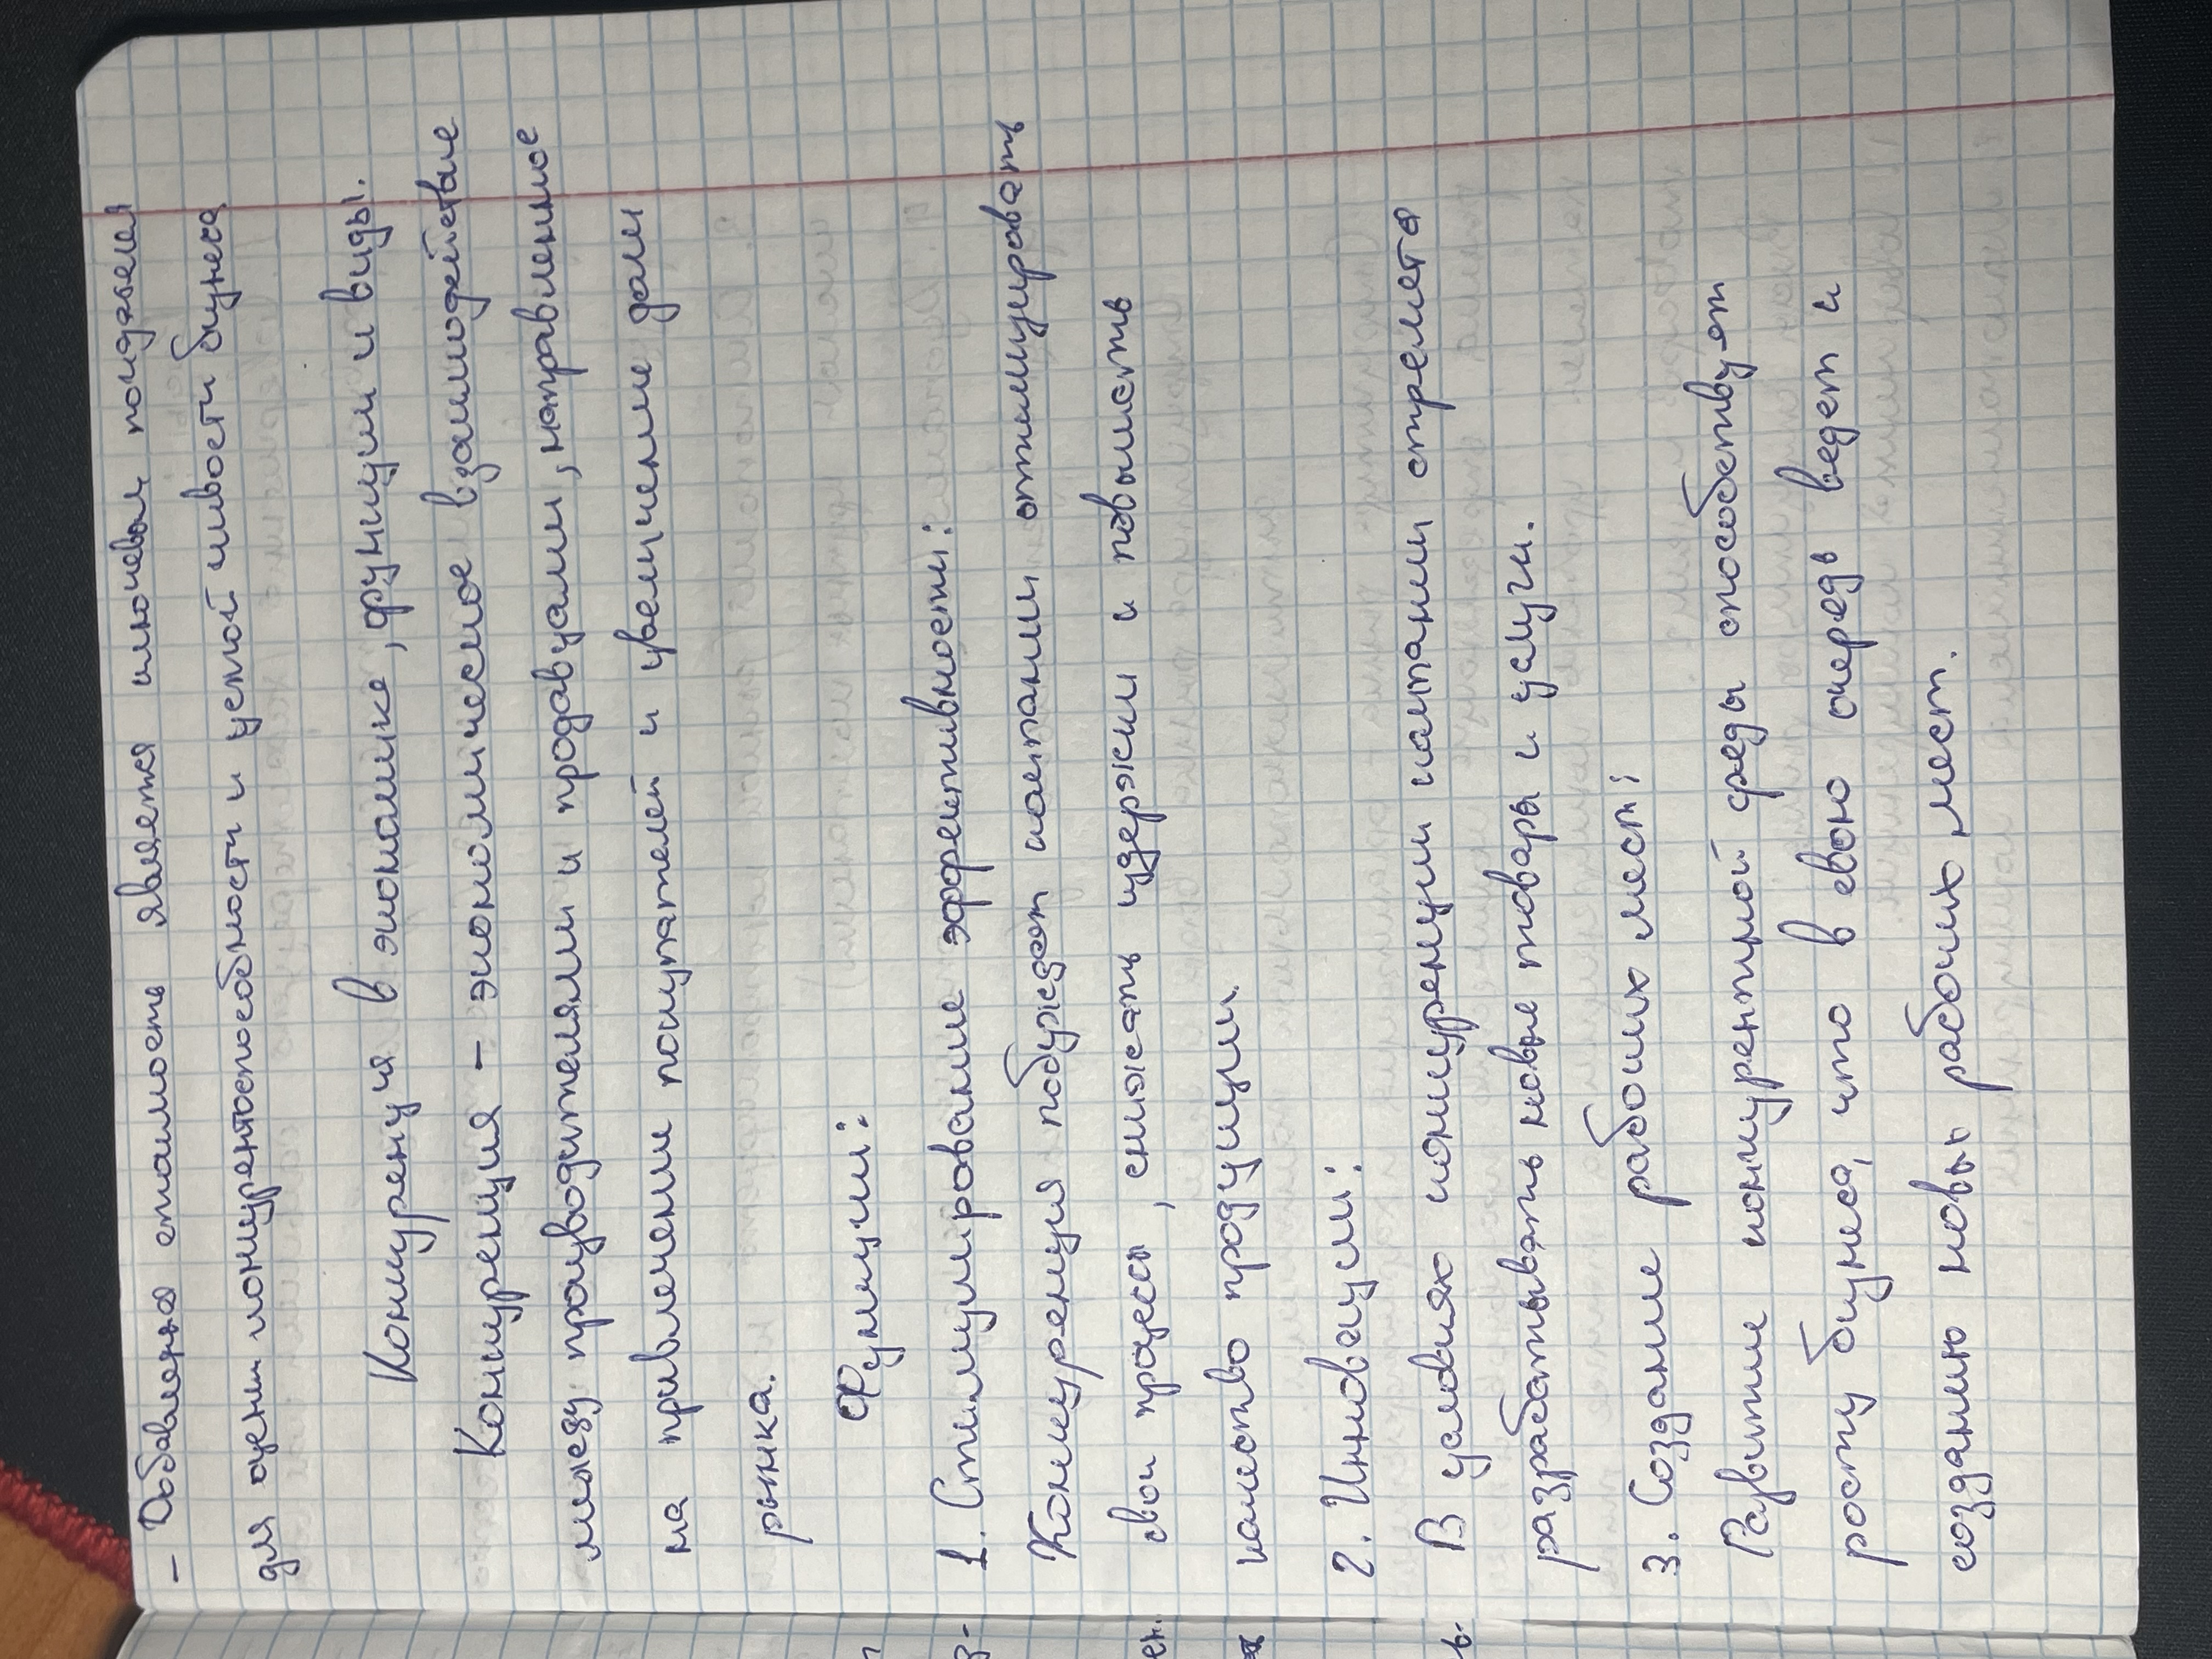 - Добавленная стоимость является ключевым показателем
для оценки конкурентоспособности и устойчивости бизнеса
Конкуренция в экономике, функции и виды.
Конкуренция - экономическое взаимодействие
между производителями и продавцами, направленное
на привлечение покупателей и увеличение доли
рынка.
Функции:
1. Стимулирование эффективности:
Конкуренция побуждает компании оптимизировать
свои процессы, снижать издержки и повысить
качество продукции.
2. Инновации:
В условиях конкуренции компании стремятся
разрабатывать новые товары и услуги.
3. Создание рабочих мест:
Развитие конкурентной среды способствует
росту бизнеса, что в свою очередь ведет к
созданию новых рабочих мест.